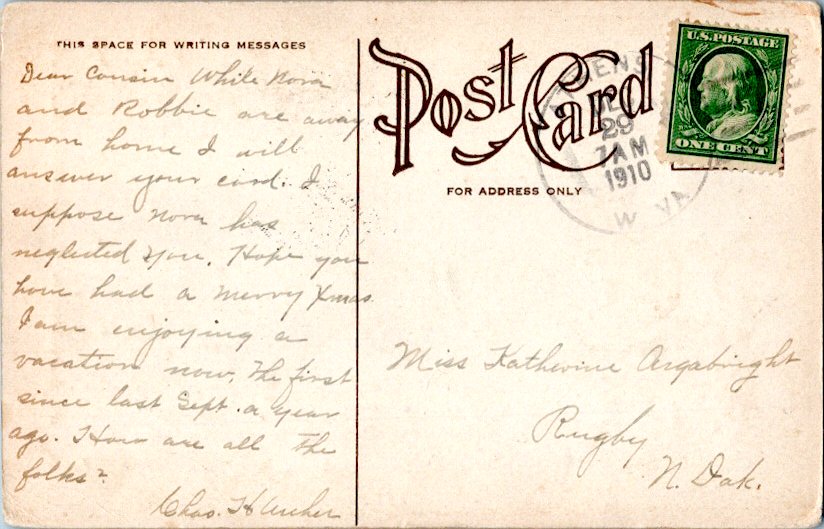 THIS SPACE FOR WRITING MESSAGES
Dear Cousin While Nora
and Robbie are away
from home I will
answer your card. I
suppose Nora has
neglected you. Hope you
have had a merry Xmas
I am enjoying a
vacation now, The first
since last Sept. a year
ago. How are all the
folks?
Chas. H
Post Card
FOR ADDRESS ONLY
U.S. POSTAGE
ONE CENT
29
7 AM
1910
W. VA
Miss Katherine Argabright
Rugby
N. Dak.